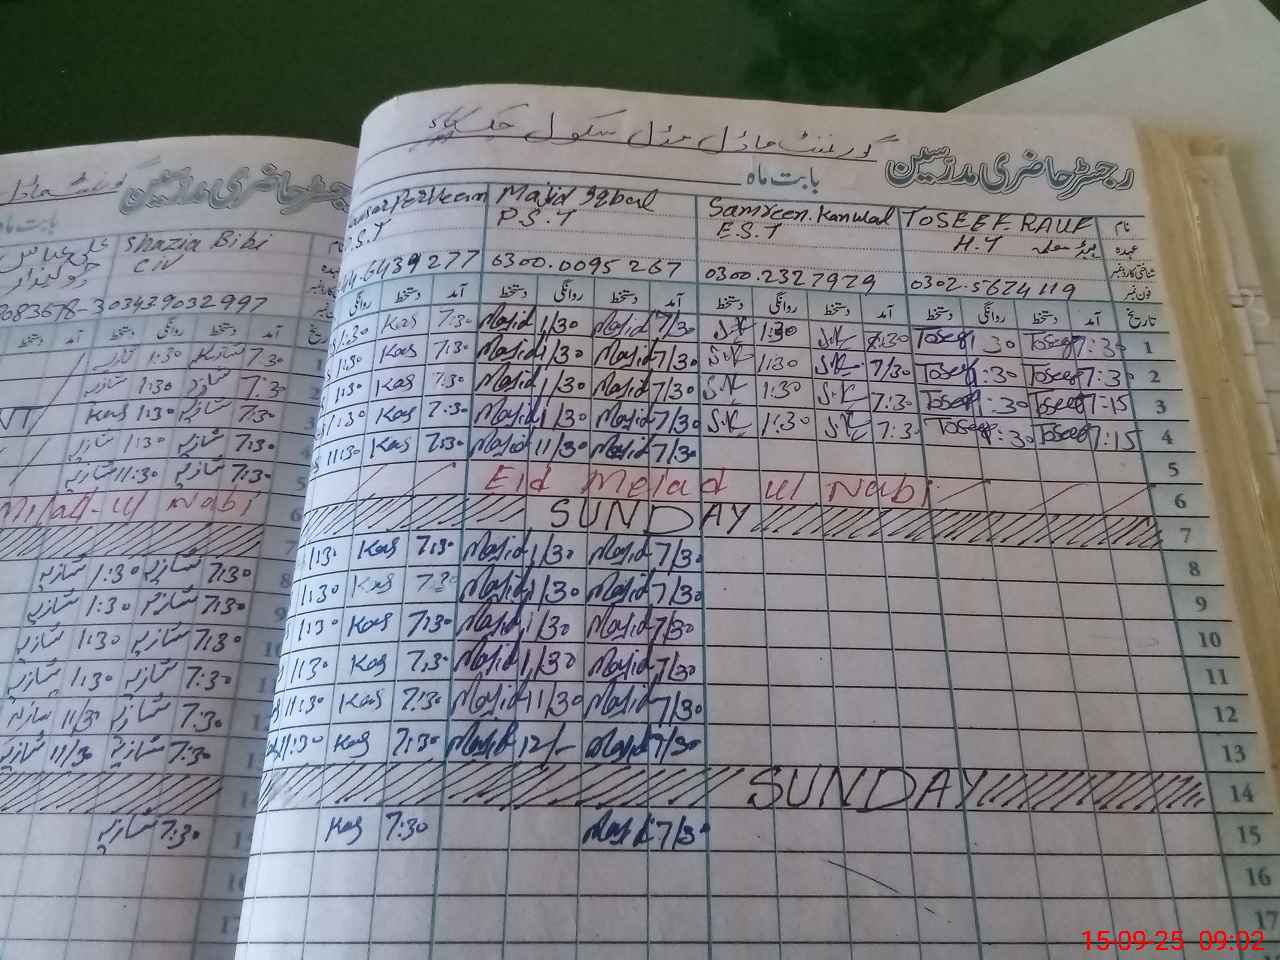 گورنمنٹ ماڈل مڈل سکول
رجسٹر حاضری مدرسین
بابت ماہ
نام TOSEEF RAUF Samreen Kanwal Majid Iqbal Perveen
عہدہ H.T E.S.T P.S.T S.T
0302-5674119 0300.2327979 0300.0095267 6439277
تاریخ آمد دستخط روانگی دستخط آمد دستخط روانگی دستخط آمد دستخط روانگی دستخط آمد دستخط روانگی
1 7:30 Toseef :30 Toseef 7:30 S.K 1:30 S.K 7/30 Majid 1/30 Majid 7:30 Kas 1:30
2 7:30 Toseef :30 Toseef 7/30 S.K 1:30 S.K 7/30 Majid 1/30 Majid 7:30 Kas 1:30
3 7:15 Toseef :30 Toseef 7:30 S.K 1:30 S.K 7/30 Majid 1/30 Majid 7:30 Kas 1:30
4 7:15 Toseef :30 Toseef 7:30 S.K 1:30 S.K 7/30 Majid 1/30 Majid 7:30 Kas 1:30
5 7/30 Majid 11/30 Majid 7:30 Kas 11:30
6 Eid Melad ul Nabi
7 SUNDAY
8 7/30 Majid 1/30 Majid 7:30 Kas 1:30
9 7/30 Majid 1/30 Majid 7:30 Kas 1:30
10 7/30 Majid 1/30 Majid 7:30 Kas 1:30
11 7/30 Majid 1/30 Majid 7:30 Kas 1:30
12 7/30 Majid 11/30 Majid 7:30 Kas 11:30
13 7/30 Majid 12/- Majid 7:30 Kas 11:30
14 SUNDAY
15 7/30 Majid 7:30 Kas
16
17
رجسٹر حاضری مدرسین
گورنمنٹ ماڈل
بابت ماہ
Shazia Bibi علی عباس
C.IV چوکیدار
03479032997 083678-3
آمد دستخط روانگی دستخط آمد دستخط
7:30 شازیہ 1:30 شازیہ
7:30 شازیہ 1:30 شازیہ
7:30 شازیہ 1:30 Kas
7:30 شازیہ 1:30 شازیہ
7:30 شازیہ 11:30 شازیہ
6 Milad-ul Nabi
7
8 7:30 شازیہ 1:30 شازیہ
9 7:30 شازیہ 1:30 شازیہ
7:30 شازیہ 1:30 شازیہ
7:30 شازیہ 1:30 شازیہ
7:30 شازیہ 11/30 شازیہ
7:30 شازیہ 11/30 شازیہ
7:30 شازیہ
15-09-25 09:02